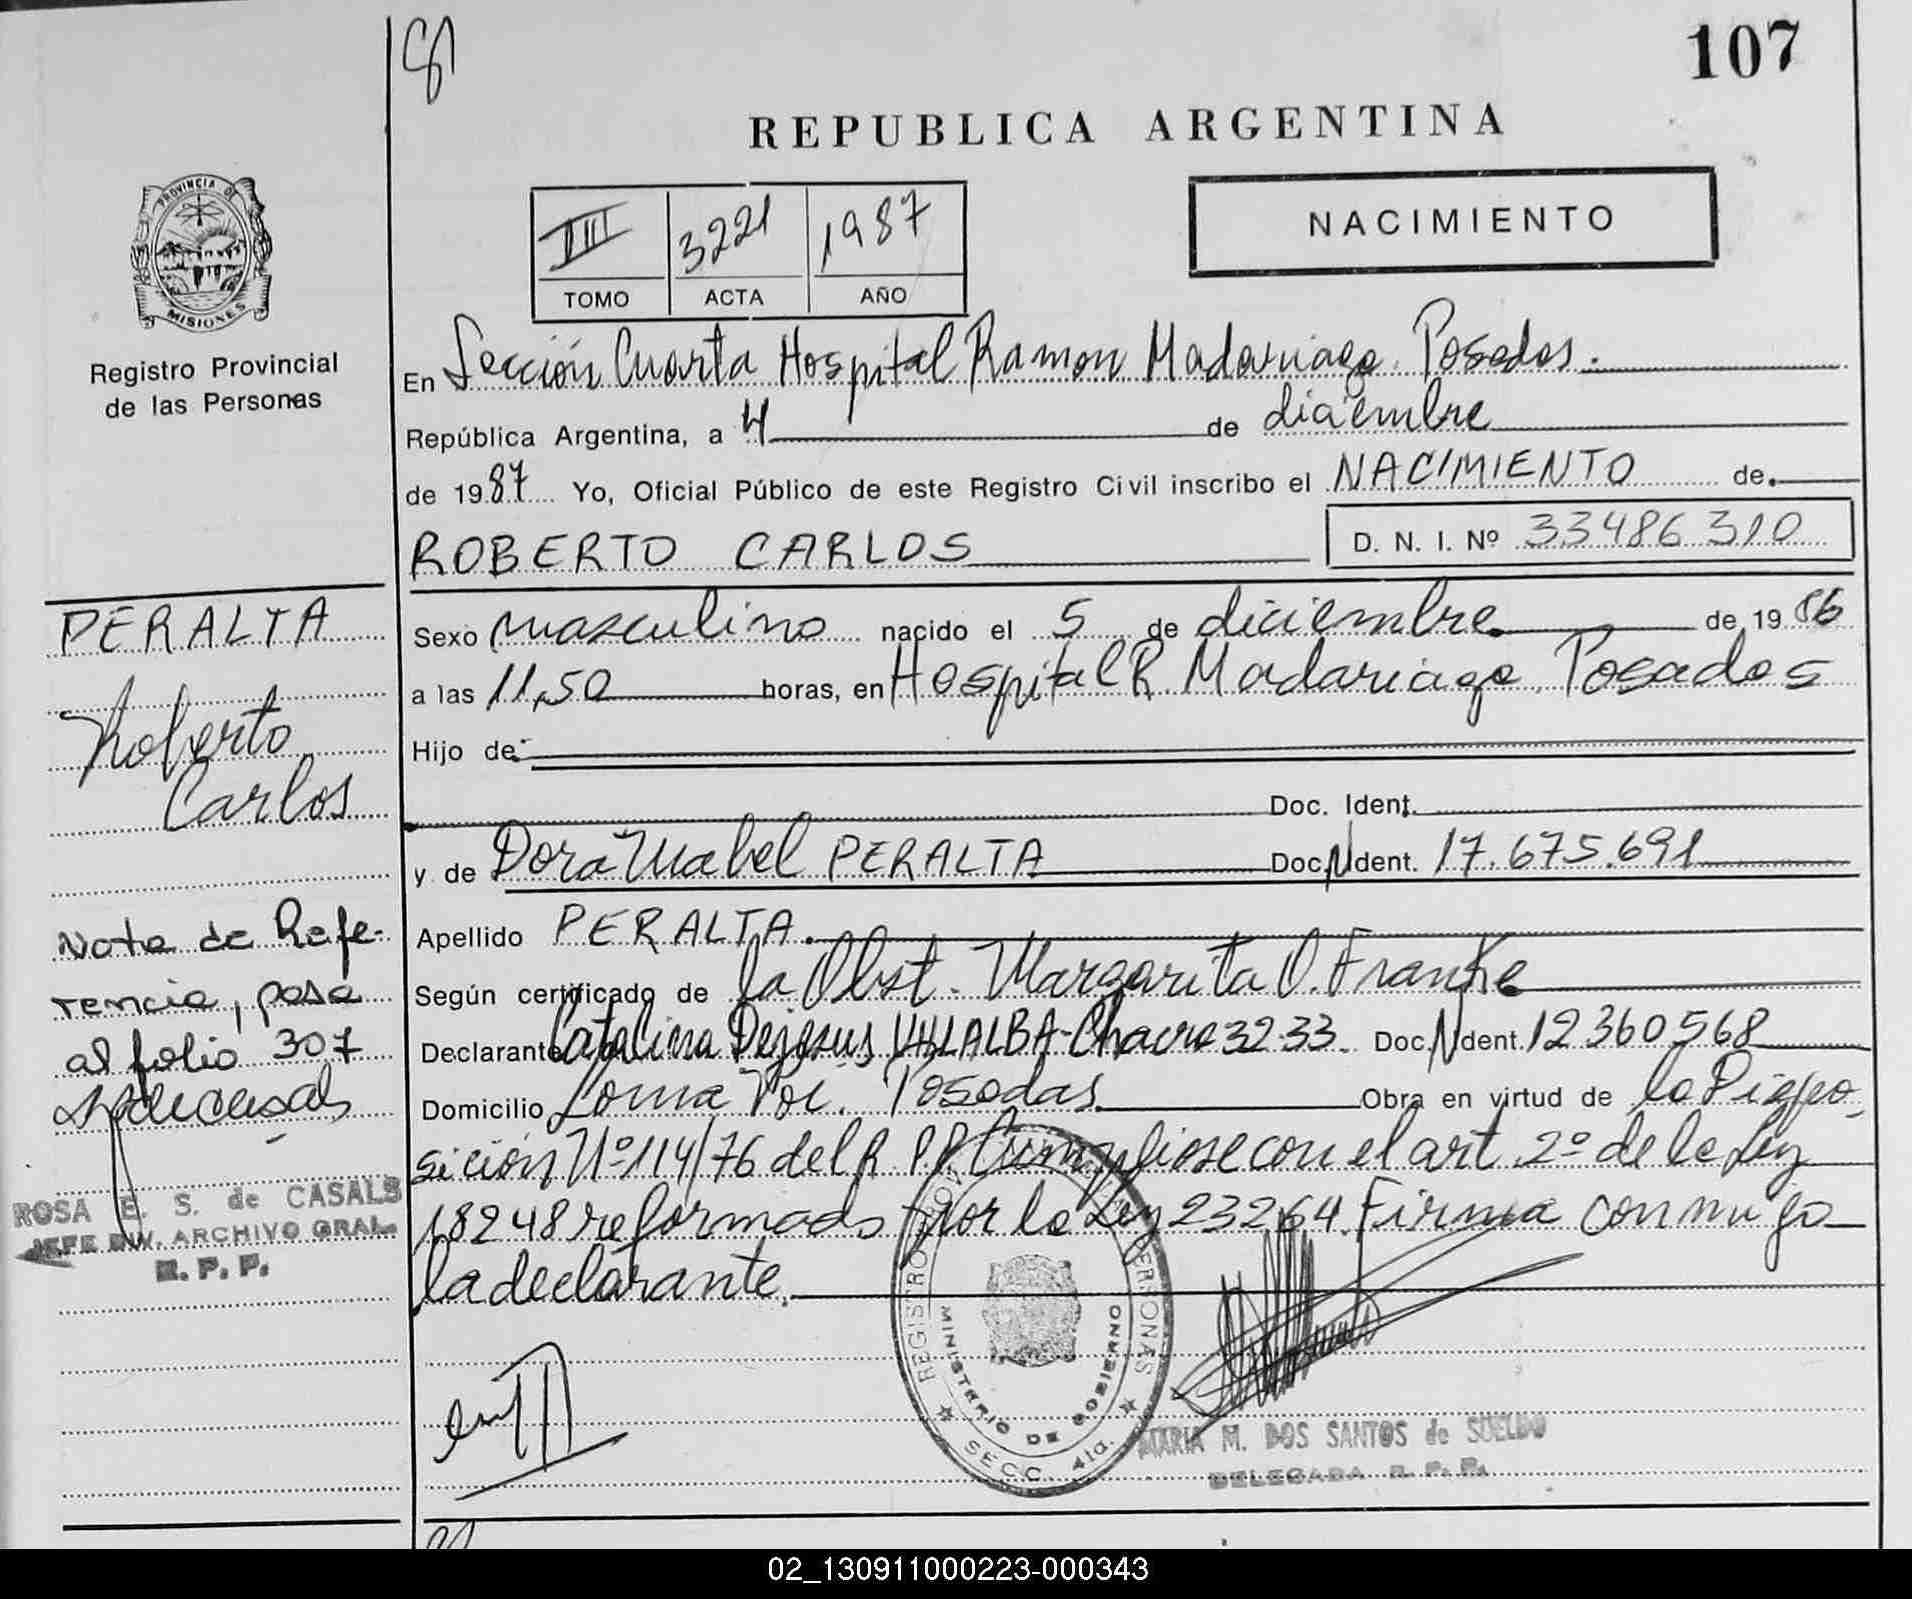 107
REPUBLICA ARGENTINA
PROVINCIA DE
MISIONES
Registro Provincial
de las Personas
III 3221 1987
TOMO ACTA AÑO
NACIMIENTO
En Sección Cuarta Hospital Ramon Madariaga. Posadas.
República Argentina, a 4 de diciembre
de 1987 Yo, Oficial Público de este Registro Civil inscribo el NACIMIENTO de.
ROBERTO CARLOS D. N. I. Nº 33486310
Sexo masculino nacido el 5 de diciembre de 1986
a las 11,50 horas, en Hospital R. Madariaga. Posadas
Hijo de:
Doc. Ident.
y de Dora Mabel PERALTA Doc. N Ident. 17.675.691
Apellido PERALTA.
Según certificado de la Obst. Margarita O. Franke
Declarante Catalina Dejesus VILLALBA-Chacra 32-33 Doc. N Ident. 12360568
Domicilio Loma Poi. Posadas Obra en virtud de la Dispo
sición Nº 114/76 del R.P.P. Cumpliose con el art. 2º de la Ley
18248 reformado por la Ley 23264. Firma conmigo
la declarante.
PERALTA
Roberto
Carlos
Nota de Refe-
rencia, pasa
al folio 307
ROSA E. S. de CASALS
JEFE DIV. ARCHIVO GRAL.
R. P. P.
MINISTERIO DE GOBIERNO
SECC. 4ta.
MARIA M. DOS SANTOS de SUELDO
DELEGADA R. P. P.
02_130911000223-000343